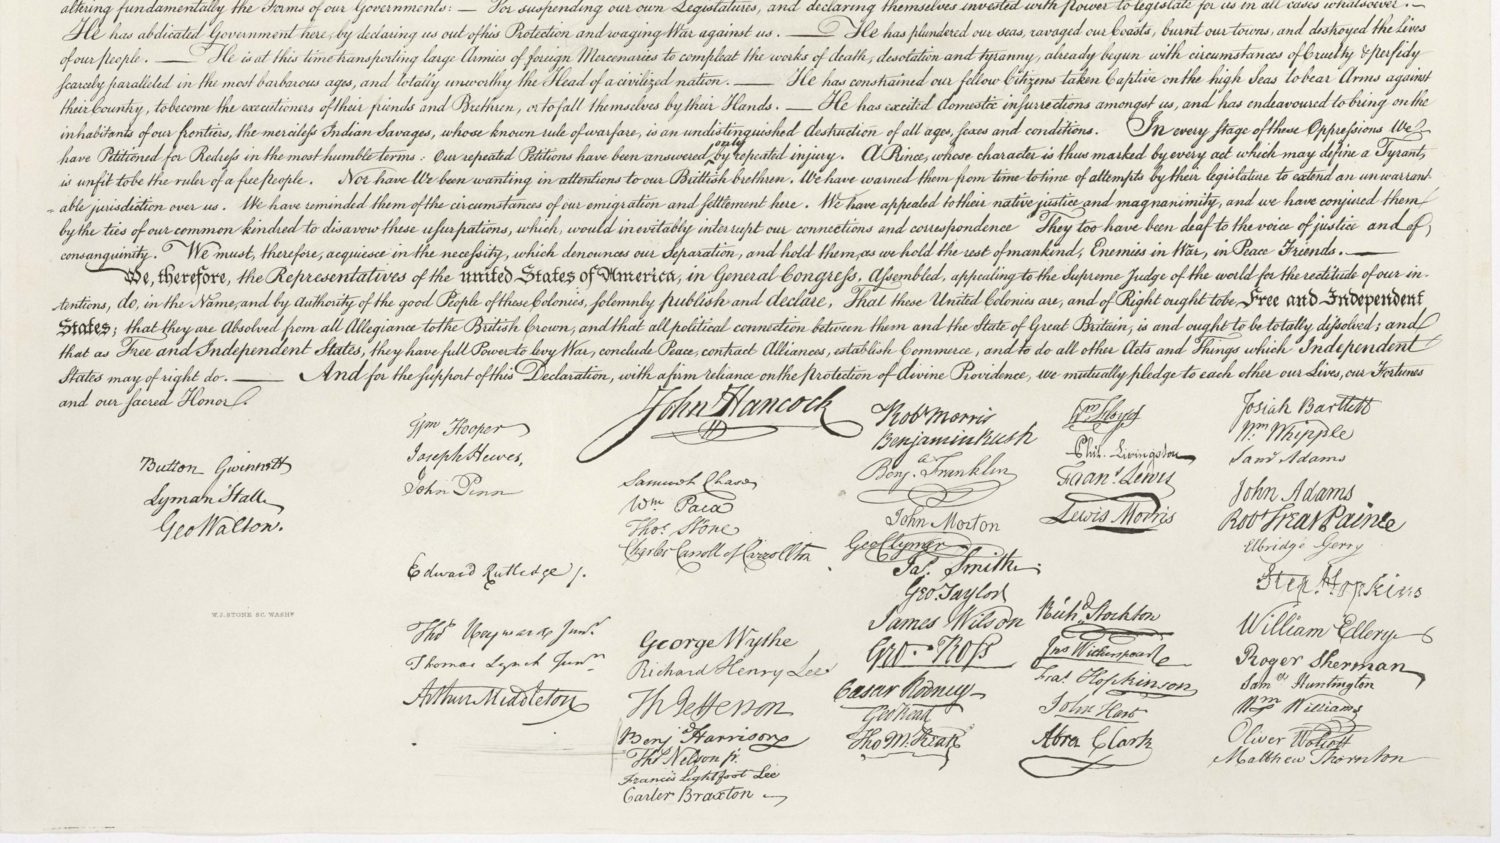 altering fundamentally the Forms of our Governments: — For suspending our own Legislatures, and declaring themselves invested with power to legislate for us in all cases whatsoever. —
He has abdicated Government here, by declaring us out of his Protection and waging War against us. — He has plundered our seas, ravaged our Coasts, burnt our towns, and destroyed the Lives
of our people. — He is at this time transporting large Armies of foreign Mercenaries to compleat the works of death, desolation and tyranny, already begun with circumstances of Cruelty & perfidy
scarcely paralleled in the most barbarous ages, and totally unworthy the Head of a civilized nation. — He has constrained our fellow Citizens taken Captive on the high Seas to bear Arms against
their Country, to become the executioners of their friends and Brethren, or to fall themselves by their Hands. — He has excited domestic insurrections amongst us, and has endeavoured to bring on the
inhabitants of our frontiers, the merciless Indian Savages, whose known rule of warfare, is an undistinguished destruction of all ages, sexes and conditions. In every stage of these Oppressions We
have Petitioned for Redress in the most humble terms: Our repeated Petitions have been answered only by repeated injury. A Prince, whose character is thus marked by every act which may define a Tyrant,
is unfit to be the ruler of a free people. Nor have We been wanting in attentions to our Brittish brethren. We have warned them from time to time of attempts by their legislature to extend an unwarrant-
-able jurisdiction over us. We have reminded them of the circumstances of our emigration and settlement here. We have appealed to their native justice and magnanimity, and we have conjured them
by the ties of our common kindred to disavow these usurpations, which, would inevitably interrupt our connections and correspondence They too have been deaf to the voice of justice and of
consanguinity. We must, therefore, acquiesce in the necessity, which denounces our Separation, and hold them, as we hold the rest of mankind, Enemies in War, in Peace Friends. —
We, therefore, the Representatives of the united States of America, in General Congress, Assembled, appealing to the Supreme Judge of the world for the rectitude of our in-
-tentions, do, in the Name, and by Authority of the good People of these Colonies, solemnly publish and declare, That these United Colonies are, and of Right ought to be Free and Independent
States; that they are Absolved from all Allegiance to the British Crown, and that all political connection between them and the State of Great Britain, is and ought to be totally dissolved; and
that as Free and Independent States, they have full Power to levy War, conclude Peace, contract Alliances, establish Commerce, and to do all other Acts and Things which Independent
States may of right do. — And for the support of this Declaration, with a firm reliance on the protection of divine Providence, we mutually pledge to each other our Lives, our Fortunes
and our sacred Honor.
Button Gwinnett
Lyman Hall
Geo Walton.
W.J. STONE SC. WASHN
Wm Hooper
Joseph Hewes,
John Penn
Edward Rutledge /.
Thos Heyward Junr.
Thomas Lynch Junr.
Arthur Middleton
John Hancock
Samuel Chase
Wm. Paca
Thos. Stone
Charles Carroll of Carrollton
George Wythe
Richard Henry Lee
Th Jefferson
Benj Harrison
Thos Nelson jr.
Francis Lightfoot Lee
Carter Braxton
Robt Morris
Benjamin Rush
Benj. Franklin
John Morton
Geo Clymer
Jas. Smith
Geo. Taylor
James Wilson
Geo. Ross
Caesar Rodney
Geo Read
Tho M:Kean
Wm Floyd
Phil. Livingston
Frans. Lewis
Lewis Morris
Richd. Stockton
Jno Witherspoon
Fras. Hopkinson
John Hart
Abra Clark
Josiah Bartlett
Wm. Whipple
Saml Adams
John Adams
Robt Treat Paine
Elbridge Gerry
Step. Hopkins
William Ellery
Roger Sherman
Samel Huntington
Wm Williams
Oliver Wolcott
Matthew Thornton